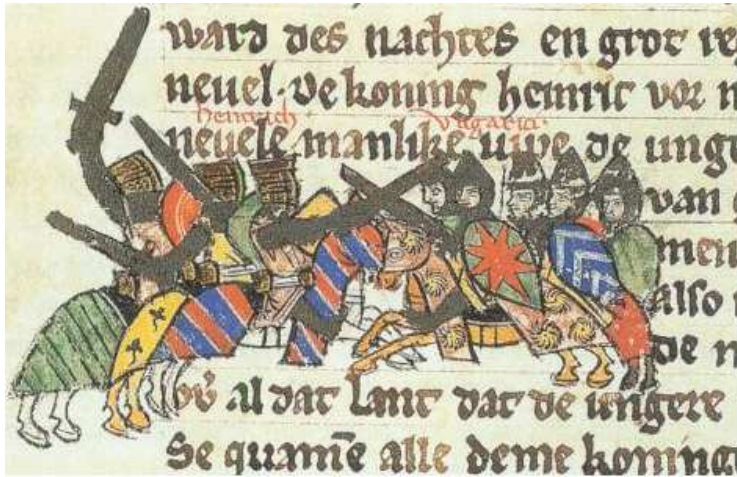 ward des nachtes en grot re
nevel. De koning heinric vor
heinrich. Ungarici.
nevele manlike uppe de unge
van
men
also
de
al dat lant dat de ungere
Se quamē alle deme koning